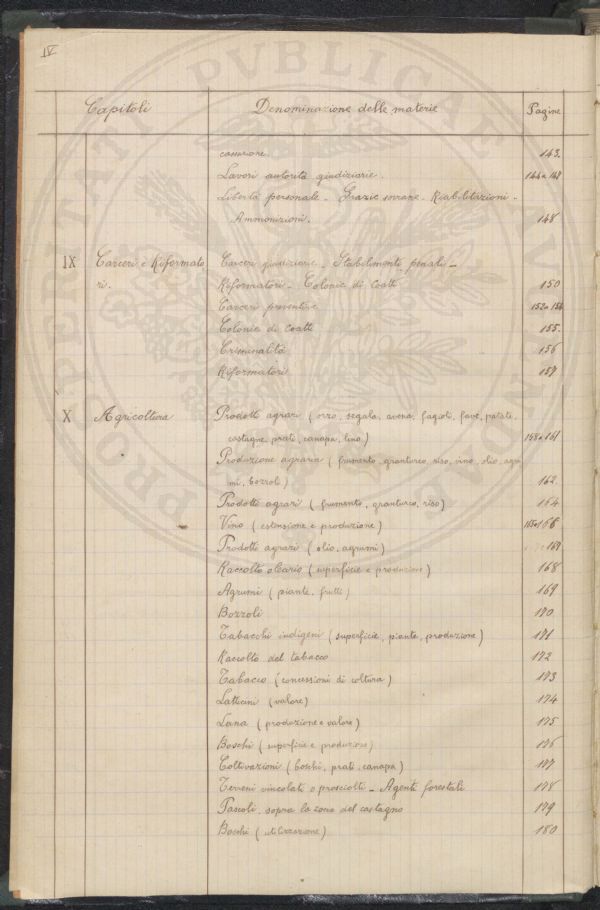 IV
Capitoli Denominazione delle materie Pagine
cassazione. 143.
Lavori autorità giudiziarie. 144 a 148
Libertà personale - Grazie sovrane - Riabilitazioni -
Ammonizioni. 148
IX Carceri e Riformato Carceri giudiziarie - Stabilimenti penali -
ri. Riformatori - Colonie di Coatti 150
Carceri preventive 152 a 154
Colonie di Coatti 155.
Criminalità 156
Riformatori 157
X Agricoltura Prodotti agrari (orzo, segala, avena, fagioli, fave, patate,
castagne, prati, canapa, lino) 158 a 161
Produzione agraria (frumento, granturco, riso, vino, olio, agru
mi, bozzoli) 162.
Prodotti agrari (frumento, granturco, riso) 164
Vino (estensione e produzione) 165 a 166
Prodotti agrari (olio, agrumi) 167
Raccolto oleario (superficie e produzione) 168
Agrumi (piante, frutti) 169
Bozzoli 170
Tabacchi indigeni (superficie, piante, produzione) 171
Raccolto del tabacco 172
Tabacco (concessioni di coltura) 173
Latticini (valore) 174
Lana (produzione e valore) 175
Boschi (superficie e produzione) 176
Coltivazioni (boschi, prati, canapa) 177
Terreni vincolati o prosciolti - Agenti forestali 178
Pascoli, sopra la zona del castagno 179
Boschi (utilizzazione) 180